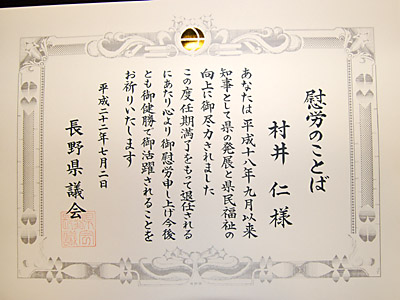 慰労のことば
村井 仁 様
あなたは平成十八年九月以来
知事として県の発展と県民福祉の
向上に御尽力されました
この度任期満了をもって退任される
にあたり心より御慰労申し上げ今後
とも御健勝で御活躍されることを
お祈りいたします
平成二十二年七月二日
長野県議会